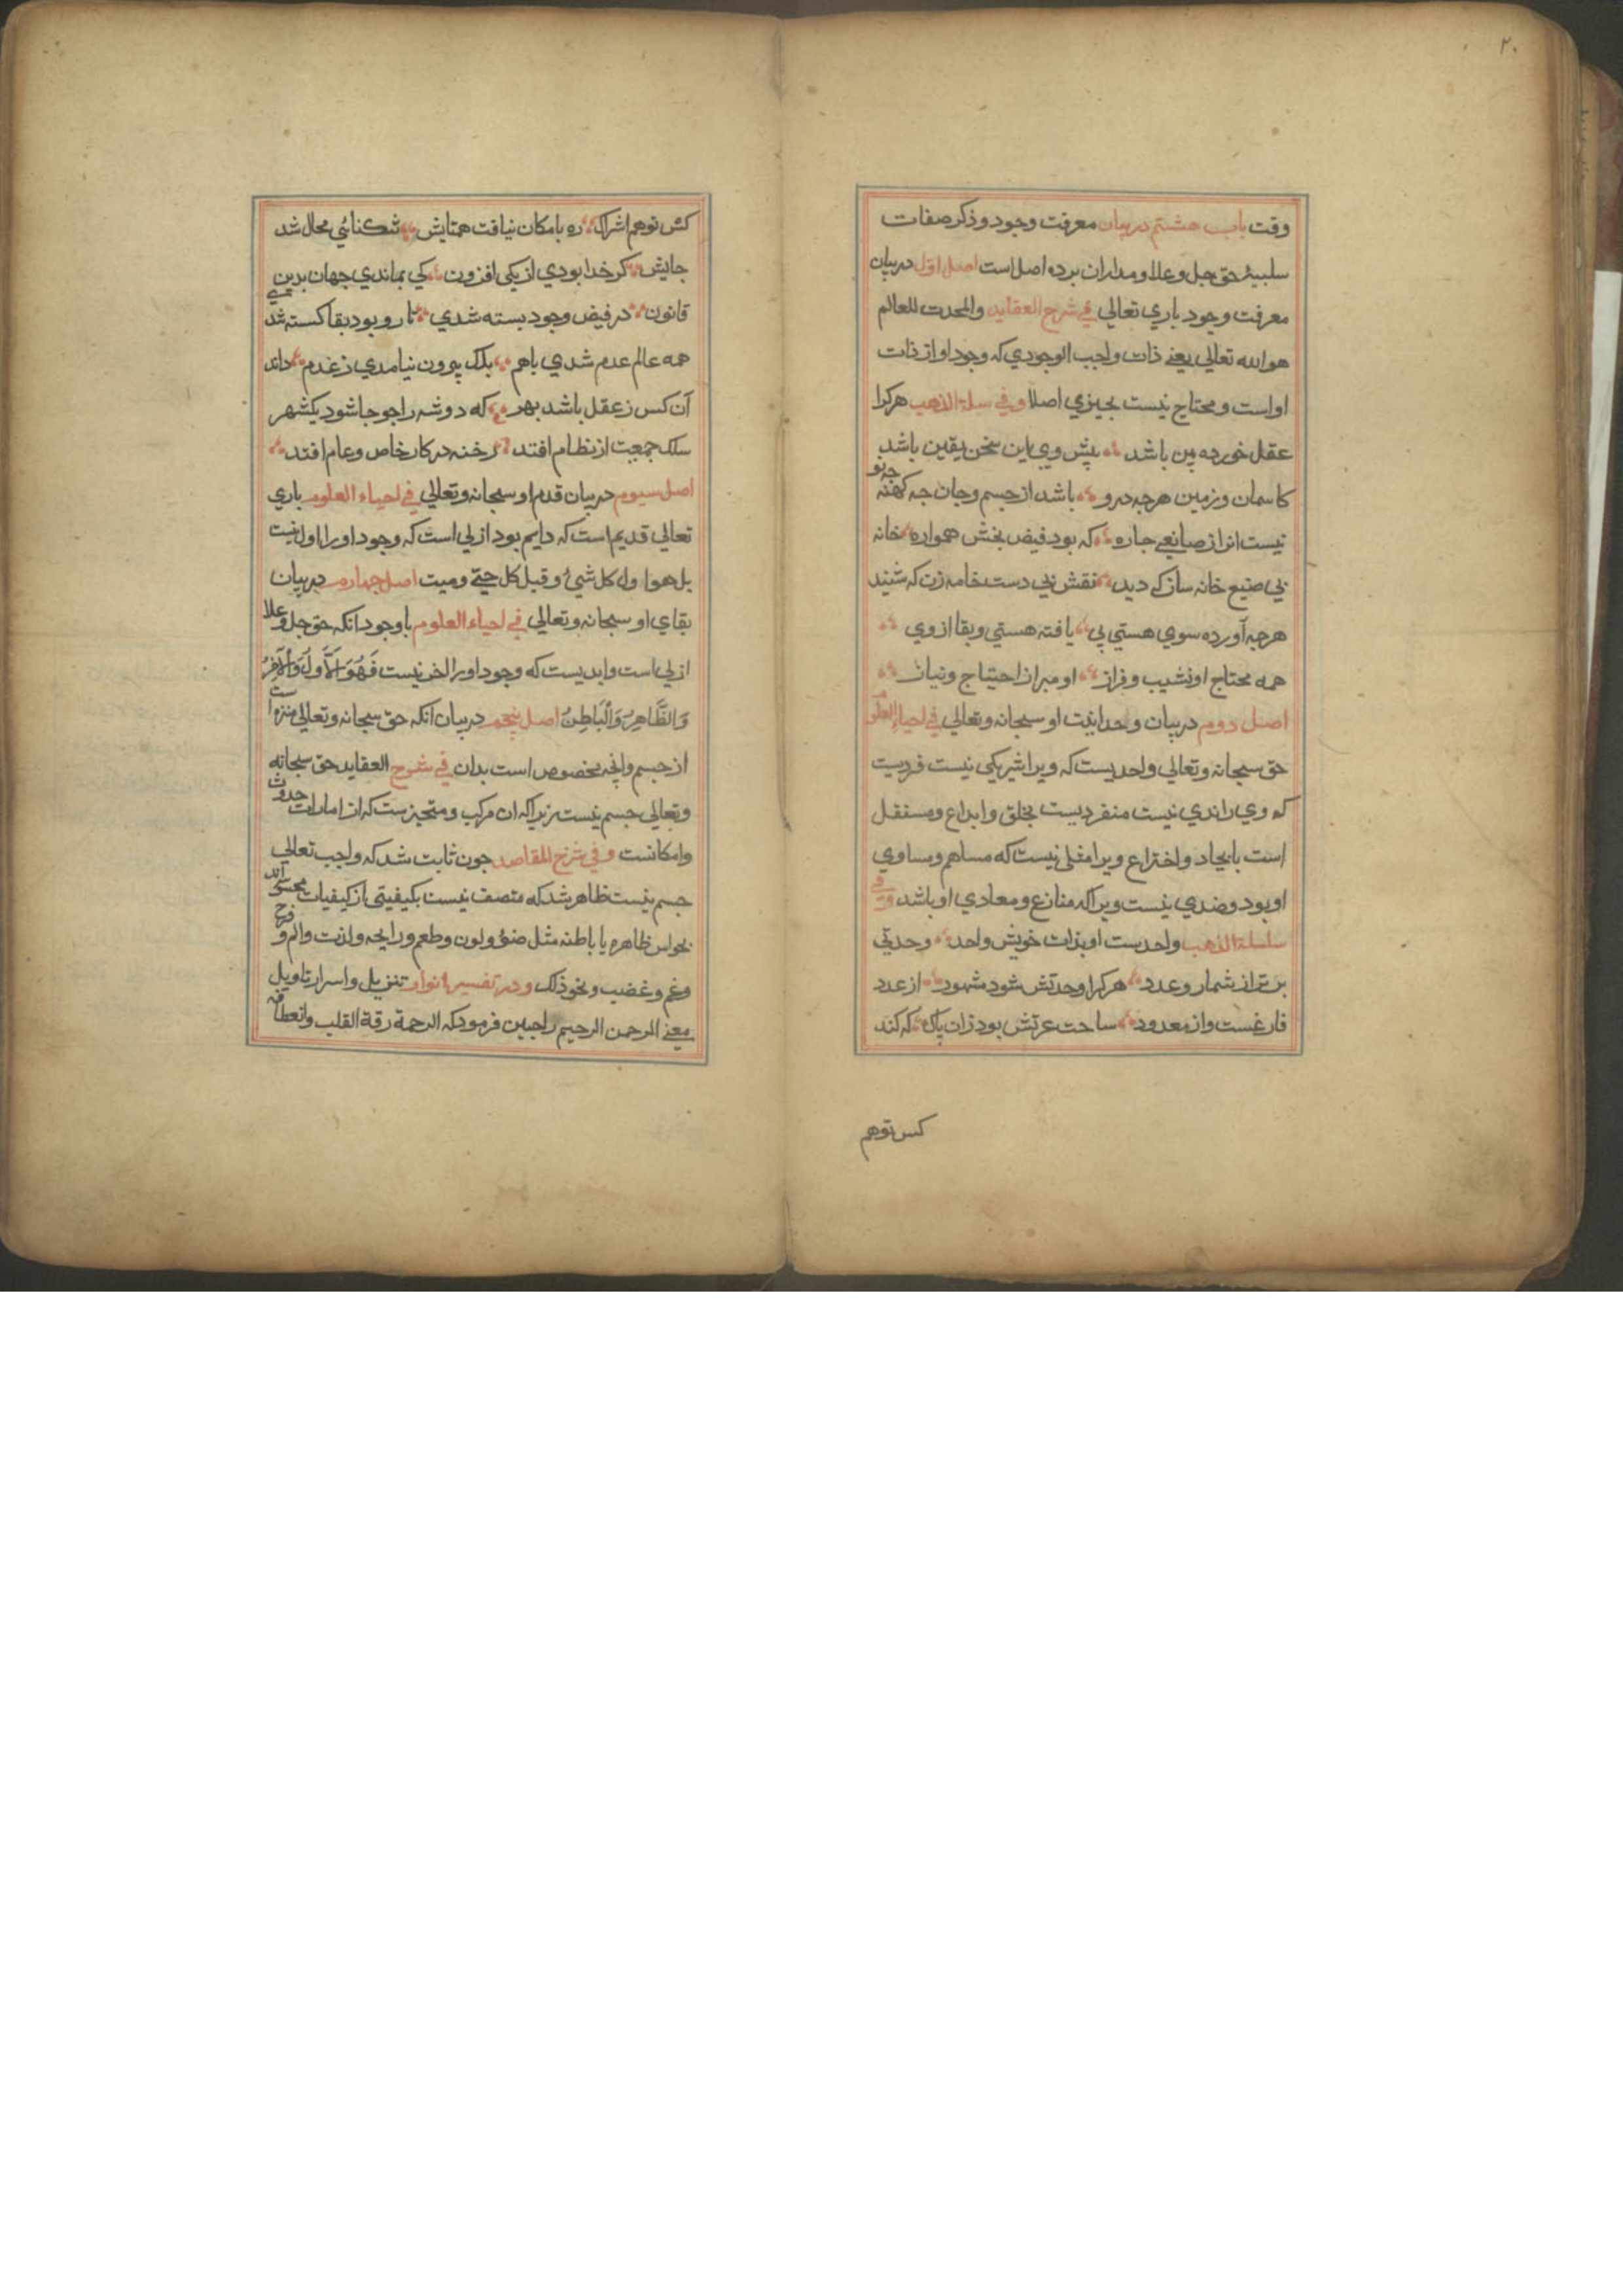 ۲۰
وقت باب هشتم در بیان معرفت وجود و ذکر صفات
سلبیهٔ حق جل وعلا و مدار ان بر ده اصل است اصل اول در بیان
معرفت وجود باري تعالی في شرح العقاید والمحدث للعالم
هو الله تعالی یعنے ذات واجب الوجودي که وجود او از ذات
او است و محتاج نیست بجیزي اصلا وفي سلسلة الذهب هرکرا
عقل خورده بین باشد پیش وي این سخن یقین باشد
کاسمان و زمین هرجه درو باشد از جسم و جان جه کهنه جه نو
نیست انرا از صانعے جاره که بود فیض بخش همواره خانه
بي صنیع خانه ساز که دید نقش بي دست خامه زن که شنید
هرجه آورده سوي هستي پي یافته هستي و بقا از وي
همه محتاج او نشیب و فراز او مبرا ز احتیاج و نیاز
اصل دوم در بیان وحدانیت او سبحانه وتعالی في احیاء العلوم
حق سبحانه وتعالی واحدیست که ویرا شریکي نیست فردیست
که وي را ندي نیست منفردیست بخلق و ابداع و مستقل
است بایجاد و اختراع ویرا مثلي نیست که مساهم و مساوي
او بود و ضدي نیست ویرا که منازع و معادي او باشد وفي
سلسلة الذهب واحدست او بذات خویش واحد وحدتي
برتر از شمار و عدد هرکرا وحدتش شود مشهود از عدد
فارغست و از معدود ساحت عزتش بود زان پاك که کند
کس توهم
کس توهم اشراك ره بامکان نیافت همتایش شد محال شد
جایش کر خدا بودي از یکی افزون کي بماندي جهان بدین
قانون در فیض وجود بسته شدي تار و پود بقا کسسته شدي
همه عالم عدم شدي باهم بلك بیرون نیامدي ز عدم داند
آن کس ز عقل باشد بهر که دو شه را جو جا شود یکشهر
سلك جمعیت از نظام افتد رخنه در کار خاص و عام افتد
اصل سیوم در بیان قدم او سبحانه وتعالی في احیاء العلوم باري
تعالی قدیم است که دایم بود ازلي است که وجود اورا اول نیست
بل هو اول کل شيء و قبل کل حيّ ومیت اصل جهارم در بیان
بقاي او سبحانه وتعالی في احیاء العلوم باوجود انکه حق جل وعلا
ازلي است وابدیست که وجود اورا اخر نیست فَهُوَ الْأَوَّلُ وَالْآخِرُ
وَالظَّاهِرُ وَالْبَاطِنُ اصل پنجم در بیان انکه حق سبحانه وتعالی منزه است
از جسم وانچه مخصوص است بدان في شرح العقاید حق سبحانه
وتعالی جسم نیست زیرا که ان مرکب و متحیزست که از امارات حدوث
وامکانست وفي شرح المقاصد جون ثابت شد که واجب تعالی
جسم نیست ظاهر شد که متصف نیست بکیفیتی از کیفیات محسوسه اند
بحواس ظاهره یا باطنه مثل ضوء و لون و طعم و رایحه و لذت والم و فرح
وغم و غضب و نحو ذلك و در تفسیر انوار تنزیل و اسرار تاویل
معنے الرحمن الرحیم را جبین فرمود که الرحمة رقة القلب وانعطافه